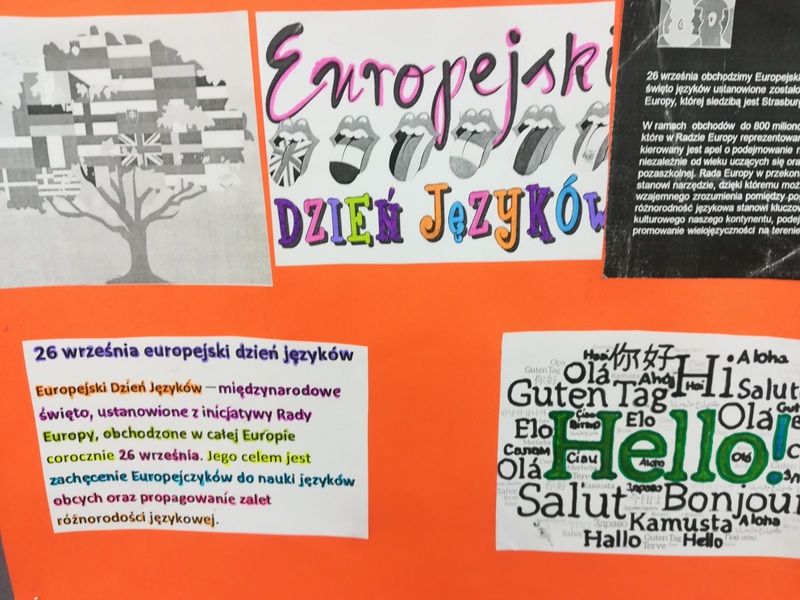 Europejski
DZIEŃ JĘZYKÓW
26 września obchodzimy Europejski
święto języków ustanowione zostało
Europy, której siedzibą jest Strasburg
W ramach obchodów do 800 milionó
które w Radzie Europy reprezentowa
kierowany jest apel o podejmowanie n
niezależnie od wieku uczących się ora
pozaszkolnej. Rada Europy w przekon
stanowi narzędzie, dzięki któremu moż
wzajemnego zrozumienia pomiędzy po
różnorodność językowa stanowi kluczow
kulturowego naszego kontynentu, podej
promowanie wielojęzyczności na terenie
26 września europejski dzień języków
Europejski Dzień Języków – międzynarodowe
święto, ustanowione z inicjatywy Rady
Europy, obchodzone w całej Europie
corocznie 26 września. Jego celem jest
zachęcenie Europejczyków do nauki języków
obcych oraz propagowanie zalet
różnorodości językowej.
你好 Hi Aloha
Olá Ahój Hei Salut
Guten Tag Olá
Elo Ciao Elo
Hello!
Салам Ciau Aloha Olá
Olá
Здраво
Salut Bonjour
Kamusta Aloha
Hallo Hello
Guten Tag
Terve